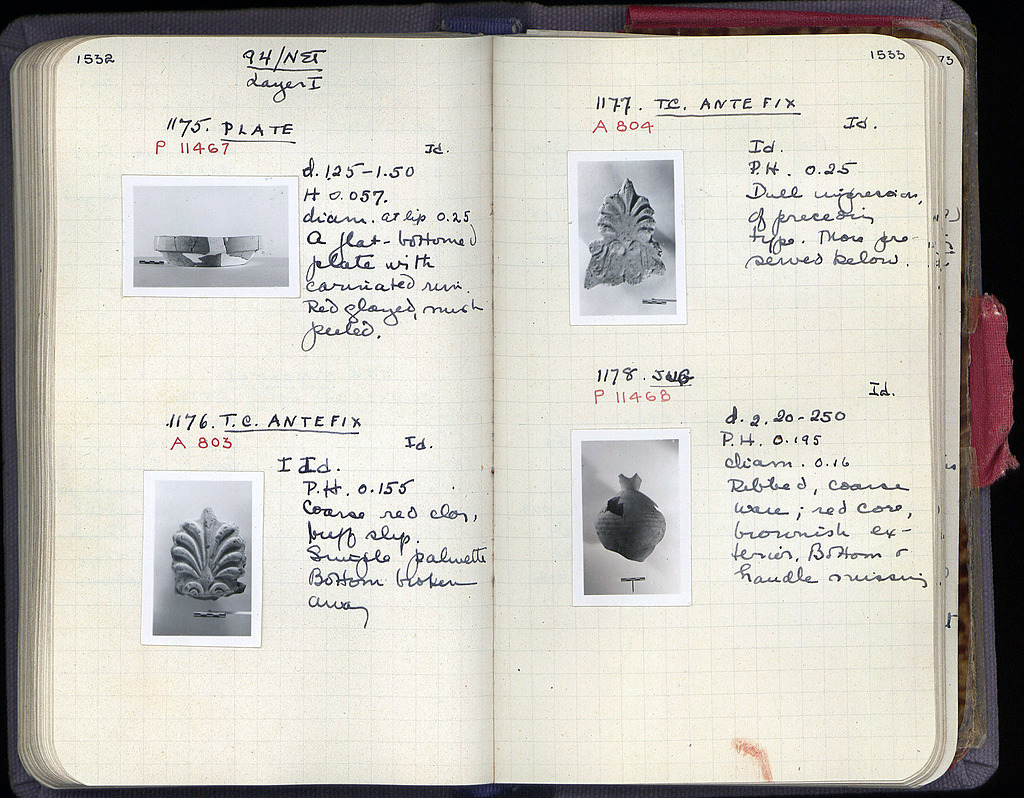 1532
94/ΝΣΤ
Layer I
1175. PLATE
P 11467
Id.
d. 1.25-1.50
H 0.057.
diam. at lip 0.25
A flat-bottomed
plate with
carinated rim.
Red glazed, much
peeled.
1176. T.C. ANTEFIX
A 803
Id.
Id.
P.H. 0.155
Coarse red clay,
buff slip.
Single palmette
Bottom broken
away
1533
1177. T.C. ANTEFIX
A 804
Id.
Id.
P.H. 0.25
Dull impression,
of preceding
type. More pre-
served below.
1178. JUG
P 11468
Id.
d. 2.20-250
P.H. 0.195
diam. 0.16
Ribbed, coarse
ware; red core,
brownish ex-
terior, Bottom &
handle missing
73